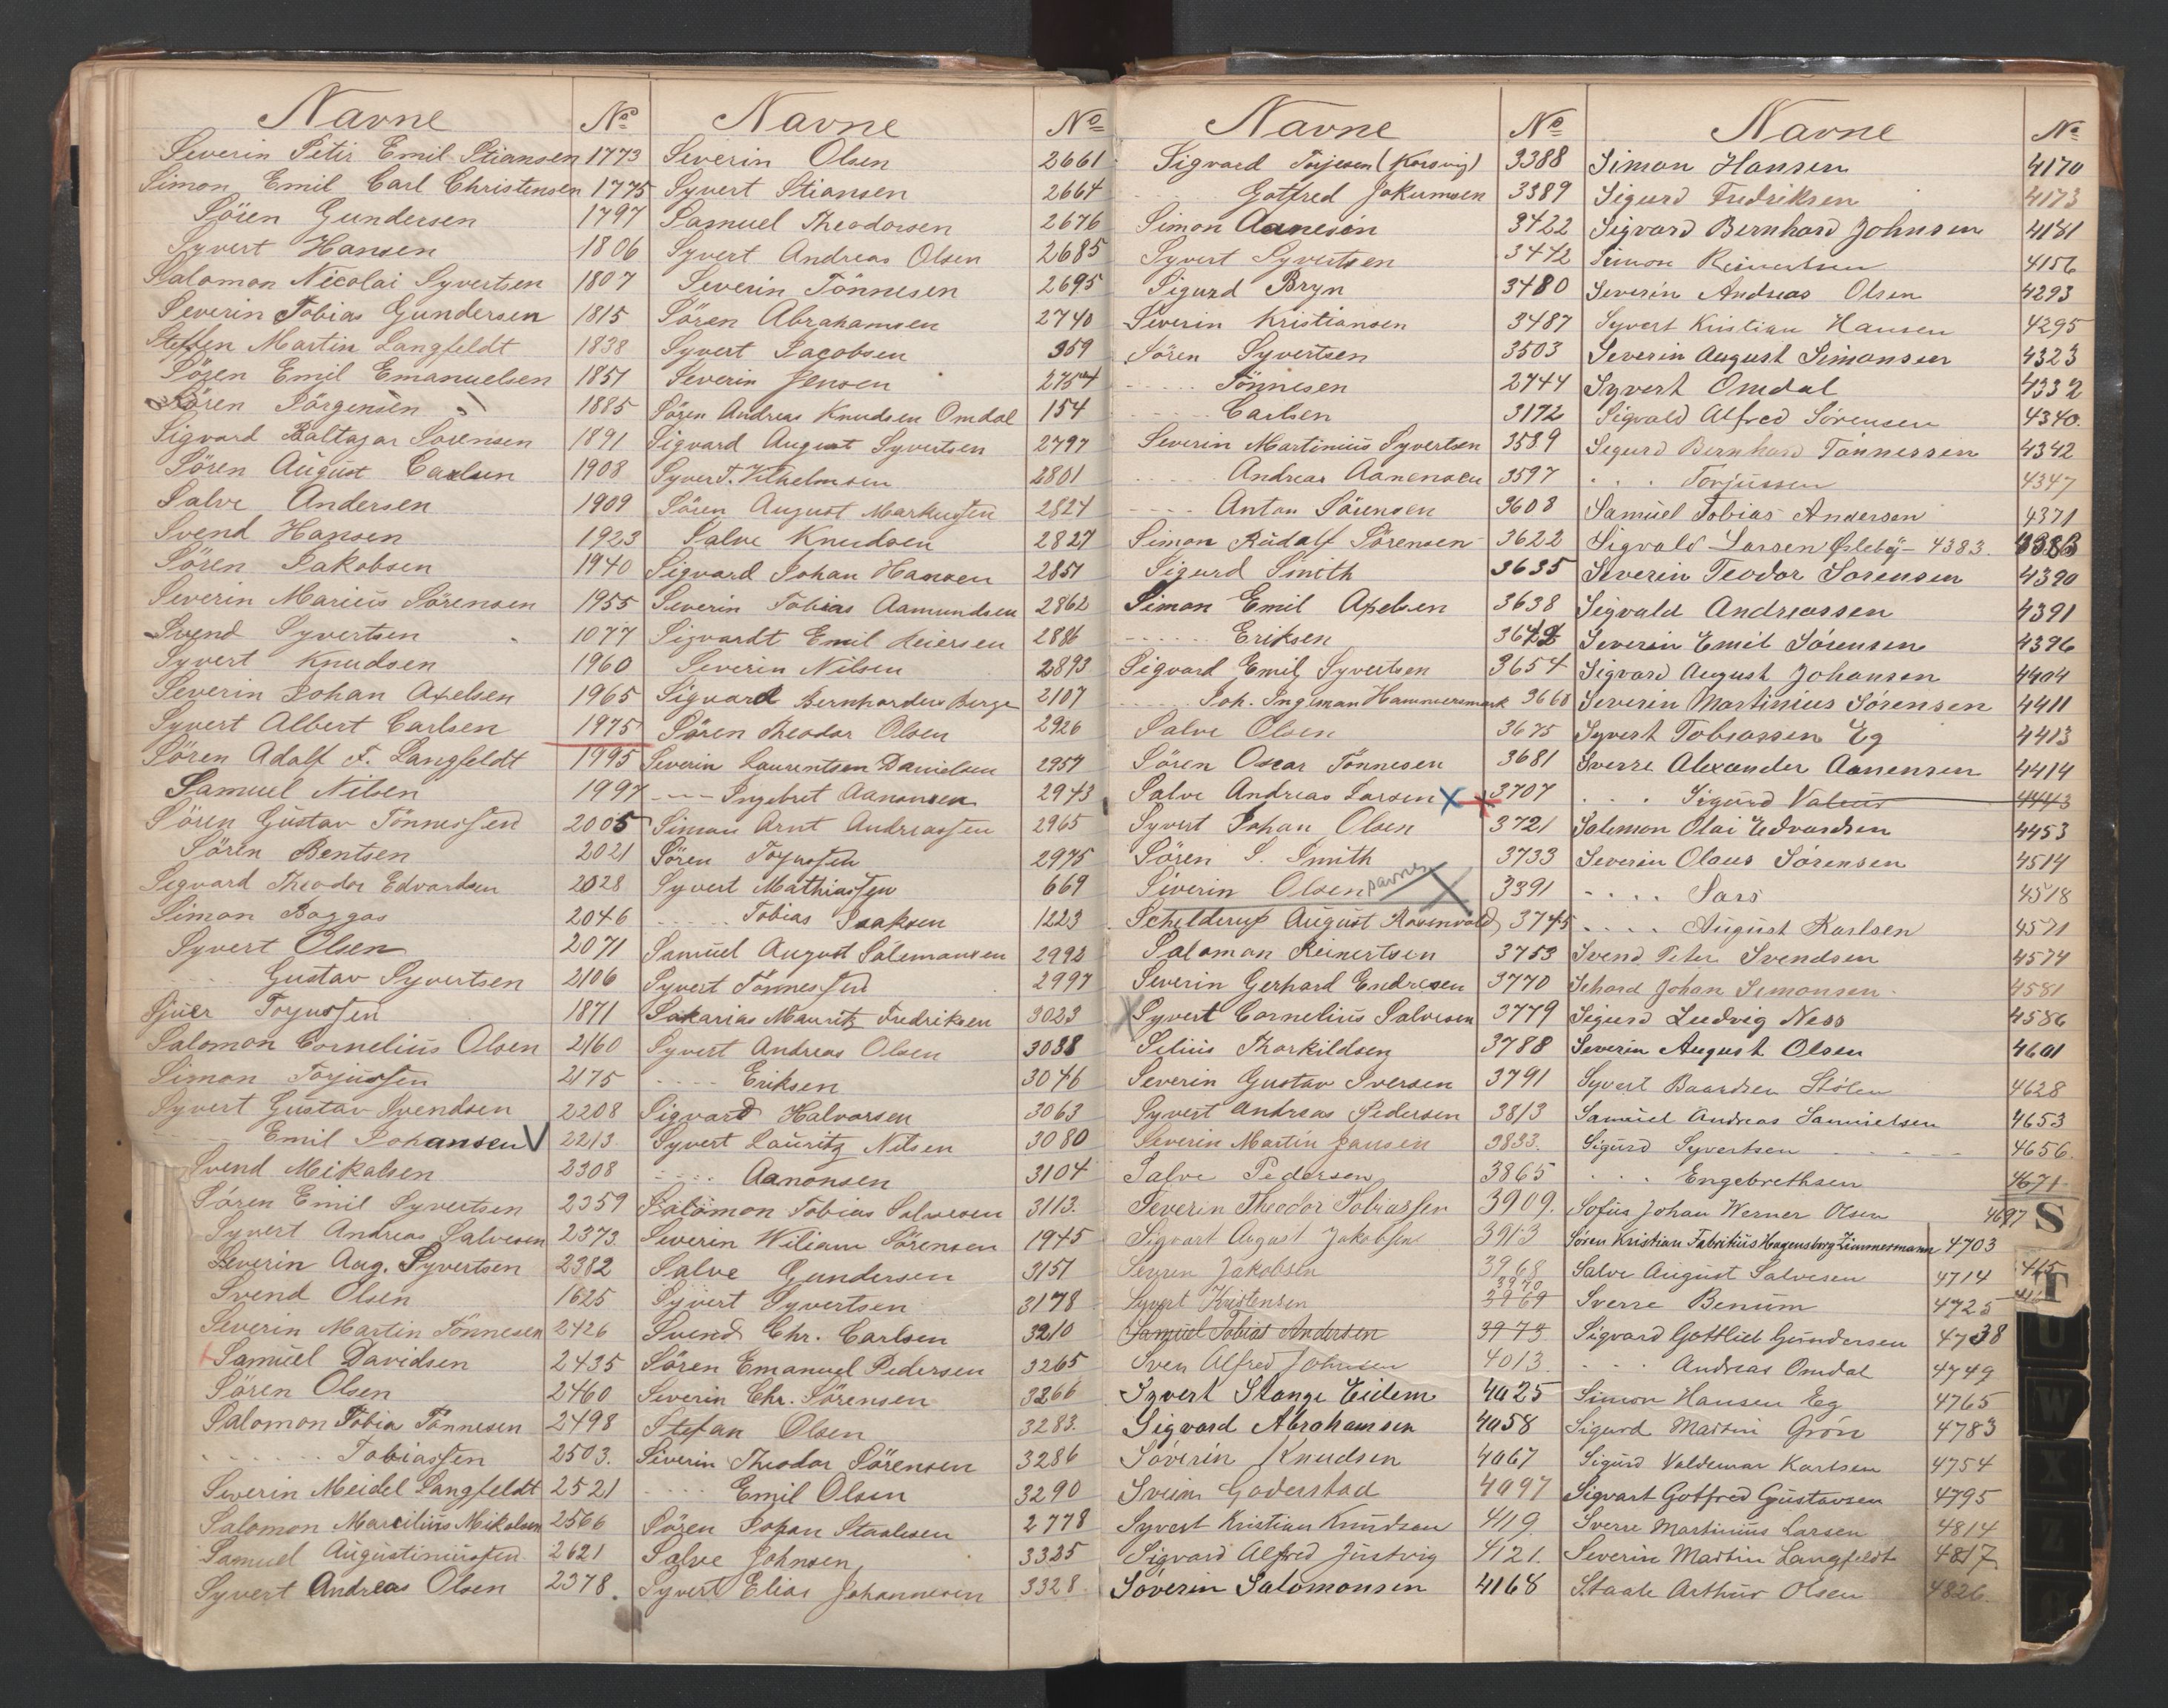 Navne No
Severin Peter Emil Stiansen 1773
Simon Emil Carl Christensen 1775
Sören Gundersen 1797
Syvert Hansen 1806
Salomon Nicolai Syvertsen 1807
Severin Tobias Gundersen 1815
Steffen Martin Langfeldt 1838
Sören Emil Emanuelsen 1851
Sören Jörgensen 1885
Sigvard Baltazar Sörensen 1891
Sören August Carlsen 1908
Salve Andersen 1909
Svend Hansen 1923
Sören Jakobsen 1940
Severin Marius Sörensen 1955
Svend Syvertsen 1077
Syvert Knudsen 1960
Severin Johan Axelsen 1965
Syvert Albert Carlsen 1975
Sören Adolf F. Langfeldt 1995
Samuel Nilsen 1997
Sören Gustav Tönnessen 2005
Sören Bentsen 2021
Sigvard Theodor Edvardsen 2028
Simon Boggas 2046
Syvert Olsen 2071
Gustav Syvertsen 2106
Sjuer Torjussen 1871
Salomon Cornelius Olsen 2160
Simon Torjussen 2175
Syvert Gustav Svendsen 2208
Emil Johansen V 2213.
Svend Mikalsen 2308
Sören Emil Syvertsen 2359
Syvert Andreas Salvesen 2373.
Severin Aug. Syvertsen 2382
Svend Olsen 1625
Severin Martin Tönnesen 2426
Samuel Davidsen 2435
Sören Olsen 2460
Salomon Tobia Tönnesen 2498
. . . . . Tobiassen 2503.
Severin Meidel Langfeldt 2521
Salomon Marcilius Mikalsen 2566
Samuel Augustinussen 2621
Syvert Andreas Olsen 2378.
Navne No
Severin Olsen 2661
Syvert Stiansen 2664
Samuel Theodorsen 2676
Syvert Andreas Olsen 2685
Severin Tönnesen 2695
Sören Abrahamsen 2740
Syvert Jacobsen 959
Severin Jensen 2754
Sören Andreas Knudsen Omdal 154
Sigvard August Syvertsen 2797
Syvert. Vilhelmsen 2801
Sören August Markussen 2824
Salve Knudsen 2827
Sigvard Johan Hansen 2851
Severin Tobias Aamundsen 2862
Sigvardt Emil Reiersen 2886
Severin Nilsen 2893
Sigvard Bernhardus Berge 2107
Sören Theodor Olsen 2926
Severin Laurentsen Danielsen 2957
---- Ingebret Aanonsen 2943
Simon Arnt Andreassen 2965
Sören Torjussen 2975
Syvert Mathiassen 669
..... Tobias Isaksen 1223
Samuel August Salemonsen 2992
Syvert Tönnessen 2997
Sakarias Mauritz Fredriksen 3023
Syvert Andreas Olsen 3038
..... Eriksen 3046
Sigvard Halvorsen 3063
Syvert Lauritz Nilsen 3080
..... Aanonsen 3104
Salomon Tobias Salvesen 3113.
Severin Wiliam Sörensen 1945
Salve Gundersen 3151
Syvert Syvertsen 3178
Svend Chr. Carlsen 3210
Sören Emanuel Pedersen 3265
Severin Chr. Sörensen 3266
Stefan Olsen 3283.
Severin Theodor Sörensen 3286
.... Emil Olsen 3290
Sören Johan Staalesen 2778
Salve Johnsen 3325
Syvert Elias Johannesen 3328.
Navne No
Sigvard Torjesen (Korsvig) 3388
Gotfred Jokumsen 3389
Simon Aanesen 3422
Syvert Syvertsen 3442
Sigurd Bryn 3480
Severin Kristiansen 3487
Sören Syvertsen 3503
..... Tönnesen 2744
..... Carlsen 3172
Severin Martinius Syvertsen 3589
..... Andreas Aanensen 3597
..... Anton Sörensen 3608
Simon Rudolf Sörensen 3622
Sigurd Smith 3635
Simon Emil Axelsen 3638
..... Eriksen 3642
Sigvard Emil Syvertsen 3654
..... Joh. Ingeman Hammersmark 3668
Salve Olsen 3675
Sören Oscar Tönnesen 3681
Salve Andreas Larsen X X 3707
Syvert Johan Olsen 3721
Sören S. Smith 3733
Severin Olsen savnes X 3391
Schelderup August Rosenvold 3745
Salomon Reinertsen 3753
Severin Gerhard Endresen 3770
X Syvert Cornelius Salvesen 3779
Selius Thorkildsen 3788
Severin Gustav Iversen 3791
Syvert Andreas Pedersen 3813
Severin Martin Jansen 3833.
Salve Pedersen 3865
Severin Theodor Tobiassen 3909.
Sigvart August Jakobsen 3913
Sören Jakobsen 3968
Syvert Kristensen 3970 3969
Samuel Tobias Andersen 3975
Sven Alfred Johnsen 4013
Syvert Stange Eidem 4025
Sigvard Abrahamsen 4058
Söverin Knudsen 4067
Svein Goderstad 4097
Syvert Kristian Knudsen 4119.
Sigvard Alfred Justvig 4121.
Söverin Salomonsen 4168
Navne No
Simon Hansen 4170
Sigurd Fredriksen 4173
Sigvard Bernhard Johnsen 4181
Simon Reinertsen 4156
Severin Andreas Olsen 4293
Syvert Kristian Hansen 4295
Severin August Simonsen 4323
Syvert Omdal 4332
Sigvald Alfred Sörensen 4340.
Sigurd Bernhard Tönnessen 4342
. . . Torjussen 4347
Samuel Tobias Andersen 4371
Sigvald Larsen Östeby - 4383. 4383
Severin Teodor Sorensen 4390
Sigvald Andreassen 4391
Severin Emil Sörensen 4396
Sigvard August Johansen 4404
Severin Martinius Sörensen 4411
Syvert Tobiassen Eg 4413
Sverre Alexander Aanensen 4414
. . . Sigurd Valeur 4443
Salomon Olai Edvardsen 4453
Severin Olaus Sörensen 4514
- . . . Sars 4518
. . . . August Karlsen 4571
Svend Peter Svendsen 4574
Sehard Johan Simonsen 4581
Sigurd Ludvig Ness 4586
Severin August Olsen 4601
Syvert Baardsen Stölen 4628
Samuel Andreas Samuelsen 4653
Sigurd Syvertsen 4656.
. . . Engebrethsen 4671
Sofus Johan Werner Olsen 4697
Sören Kristian Fabritius Hagensborg Zimmermann 4703
Salve August Salvesen 4714
Sverre Benum 4725
Sigvard Gottlieb Gundersen 4738
. . . Andreas Omdal 4749
Simon Hansen Eg 4765
Sigurd Martin Grön 4783
Sigurd Valdemar Karlsen 4754
Sigvart Gotfred Gustavsen 4795
Sverre Martinius Larsen 4814
Severin Martin Langfeldt 4817
Staale Arthur Olsen 4826.
S
T
U
W
X